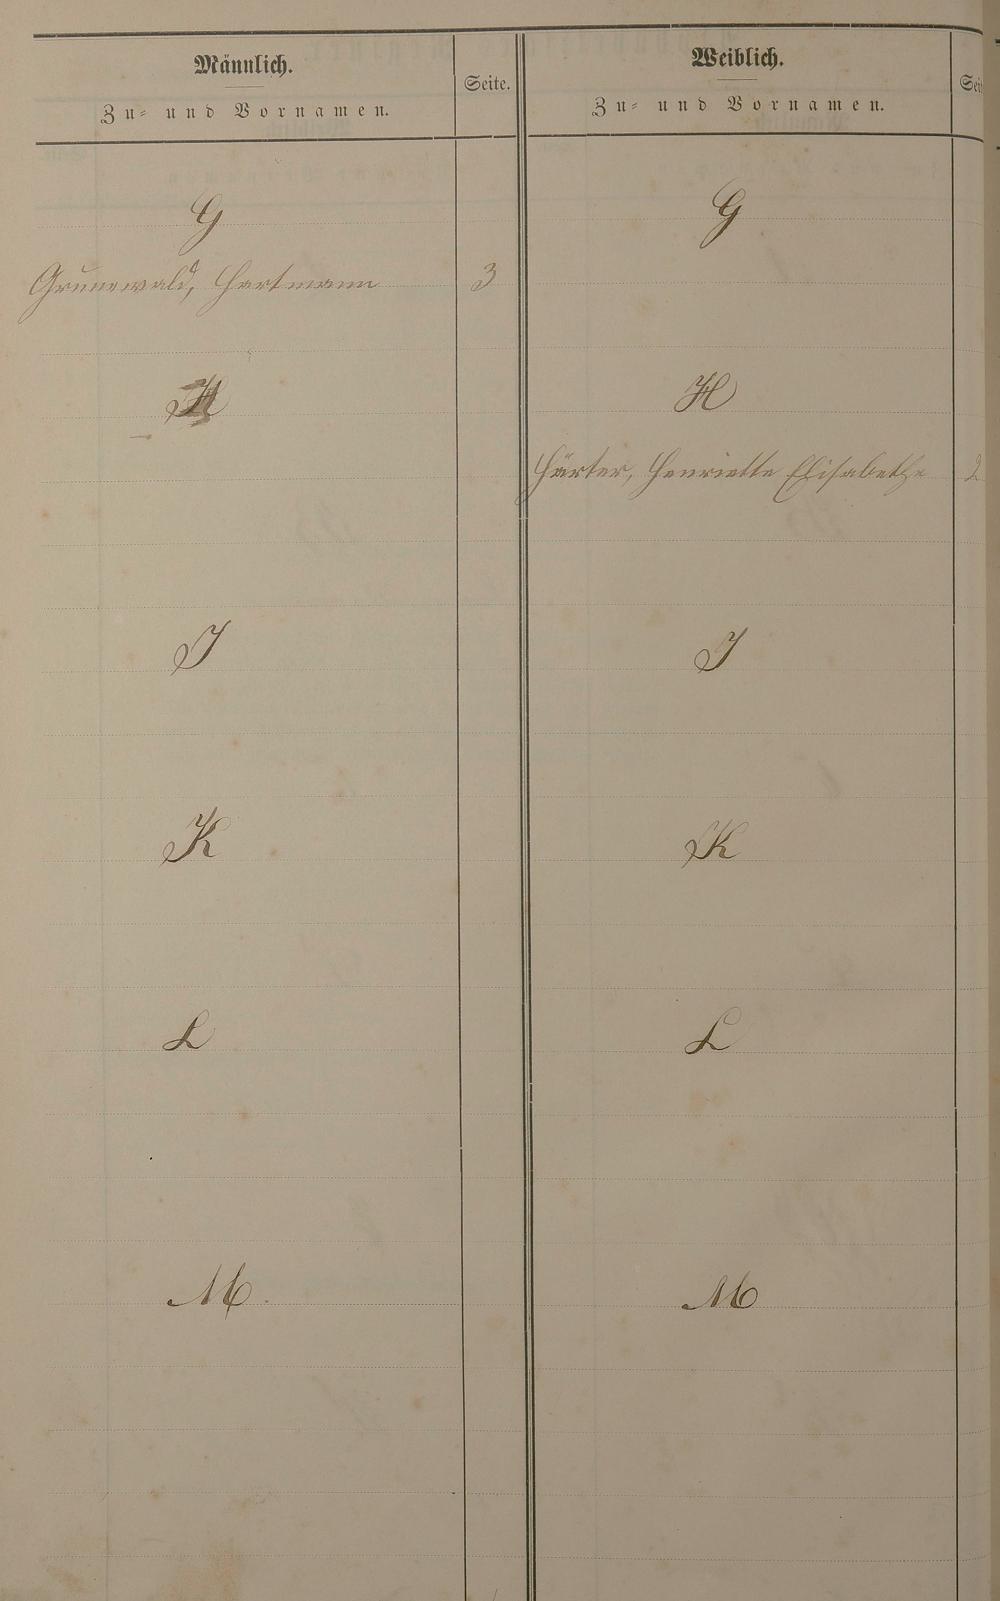 Männlich.
Zu- und Vornamen.
Seite.
Weiblich.
Zu- und Vornamen.
Seit
G
G
Grunewald, Hartmann 3
H
H
Härter, Henriette Elisabethe 2
I
I
K
K
L
L
M.
M